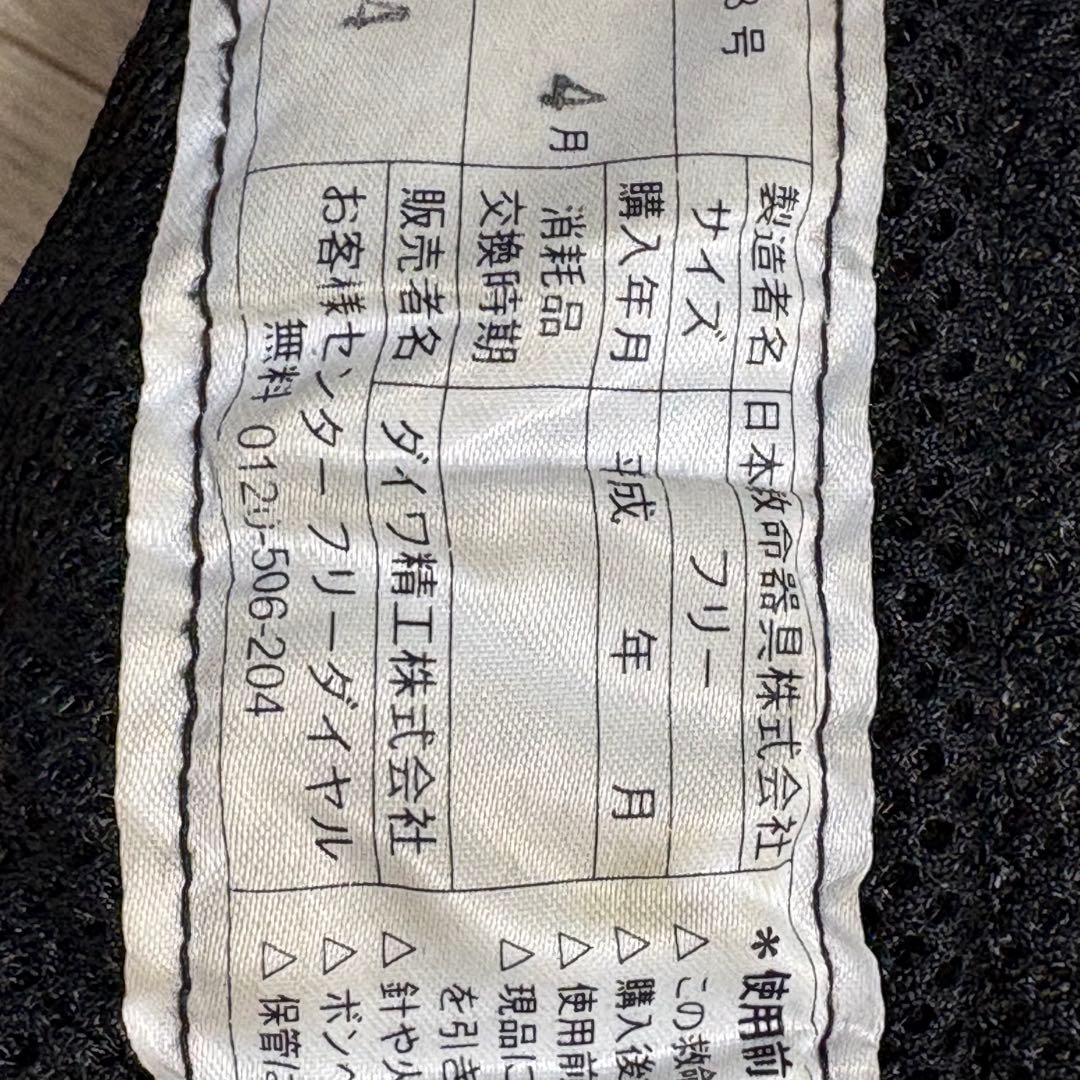 号
4月
4
製造者名 日本救命器具株式会社
サイズ フリー
購入年月 平成 年 月
消耗品
交換時期
販売者名 ダイワ精工株式会社
お客様センターフリーダイヤル
無料 0120-506-204
*使用前
△ この救命
△ 購入後
△ 使用前
△ 現品に
を引き
△ 針や火
△ ボンベ
△ 保管は